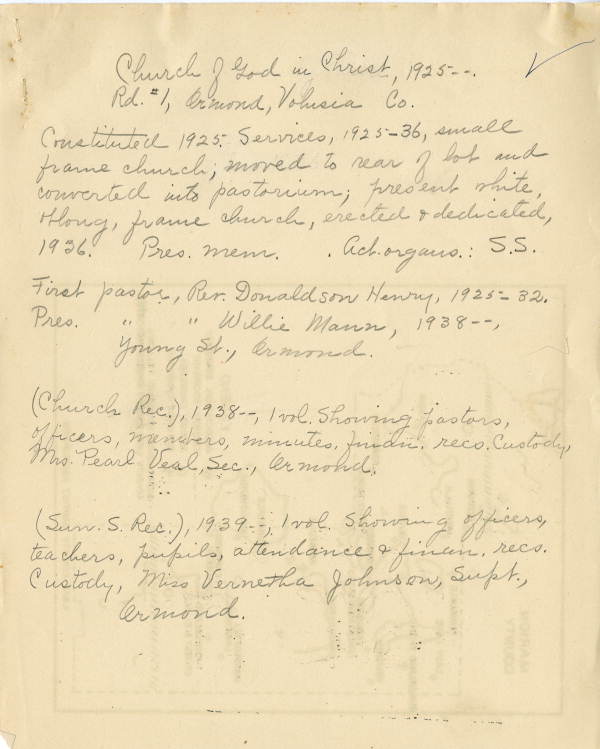 Church of God in Christ, 1925--.
Rd. #1, Ormond, Volusia Co.
Constituted 1925. Services, 1925-36, small
frame church; moved to rear of lot and
converted into pastorium; present white,
oblong, frame church, erected & dedicated,
1936. Pres. mem. . Act. organs.: S.S.
First pastor, Rev. Donaldson Henry, 1925-32.
Pres. " " Willie Mann, 1938--,
Young St., Ormond.
(Church Rec.), 1938--, 1 vol. Showing pastors,
officers, members, minutes, finan. recs. Custody,
Mrs. Pearl Veal, Sec., Ormond.
(Sun. S. Rec.), 1939--, 1 vol. Showing officers,
teachers, pupils, attendance & finan. recs.
Custody, Miss Vernetha Johnson, Supt.,
Ormond.